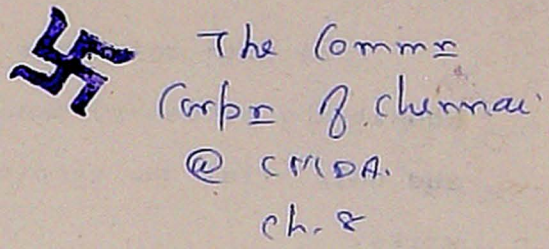 The Commr
Corpn of Chennai
@ CMDA.
Ch. 8